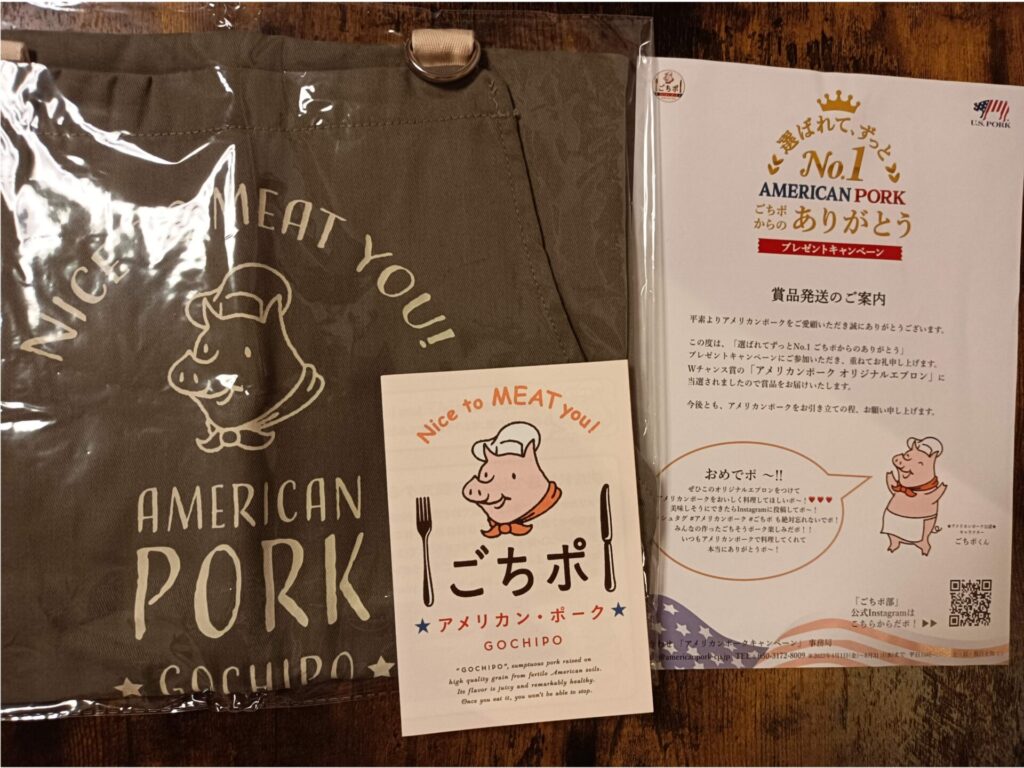 NICE TO MEAT YOU!
AMERICAN
PORK
★ GOCHIPO ★
Nice to MEAT you!
ごちポ
★ アメリカン・ポーク ★
GOCHIPO
"GOCHIPO", sumptuous pork raised on
high quality grain from fertile American soils.
Its flavor is juicy and remarkably healthy.
Once you eat it, you won't be able to stop.
ごちポ
U.S. PORK
選ばれて、ずっと
No.1
AMERICAN PORK
ごちポ
からの ありがとう
プレゼントキャンペーン
賞品発送のご案内
平素よりアメリカンポークをご愛顧いただき誠にありがとうございます。
この度は、「選ばれてずっとNo.1 ごちポからのありがとう」
プレゼントキャンペーンにご参加いただき、重ねてお礼申し上げます。
Wチャンス賞の「アメリカンポーク オリジナルエプロン」に
当選されましたので賞品をお届けいたします。
今後とも、アメリカンポークをお引き立ての程、お願い申し上げます。
おめでポ ～!!
ぜひこのオリジナルエプロンをつけて
アメリカンポークをおいしく料理してほしいポ～！♥♥♥
美味しそうにできたらInstagramに投稿してポ～！
シュタグ #アメリカンポーク #ごちポ も絶対忘れないでポ！
みんなの作ったごちそうポーク楽しみだポ！！
いつもアメリカンポークで料理してくれて
本当にありがとうポ～！
★アメリカンポーク公認★
キャラクター
ごちポくん
「ごちポ部」
公式Instagramは
こちらからだポ！ ▶▶
わせ「アメリカンポークキャンペーン」 事務局
@americanpork-cp.jp, TEL : 050-3172-8009